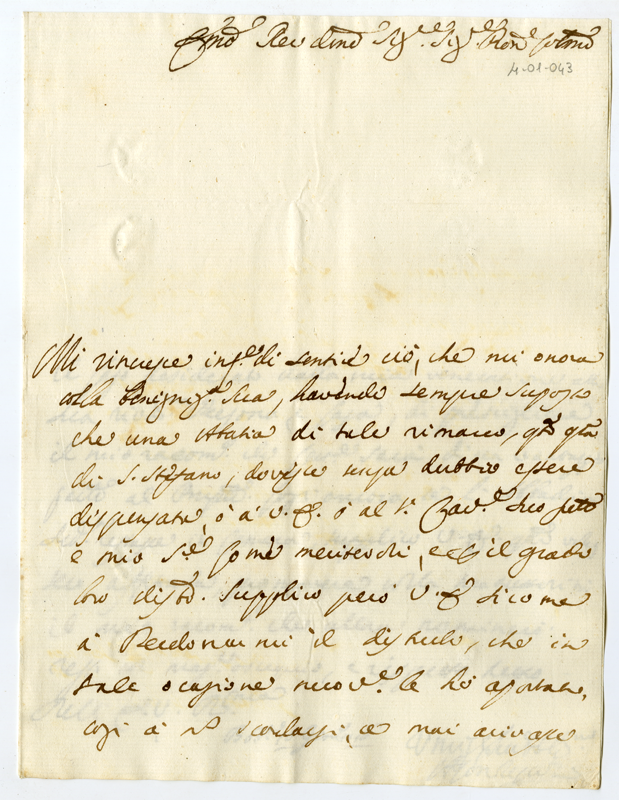 Em.o Rev.dmo Sig.re Sig.re Pron.e Col.mo
4-01-043
Mi rincresce inf.te di sentire ciò, che mi onora
colla Benignis.a Sua, havendo sempre suposto
che una Abatia di tale rimarco, q.to q.ta
di S. Stefano, dovesse senza dubbio essere
dispensata, ò à V. E. ò al S.r Cav.re suo
e mio S.re come meritevoli, e il grado
loro dist.o. Supplico però V. E. sicome
à Perdonarmi il disturbo, che in
tale ocasione le hò aportato,
così à n.o scordarsi, se mai arivasse